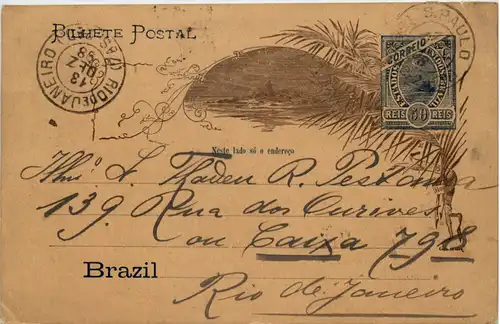 BILHETE POSTAL
RIO DE JANEIRO
13
DEZ
98
S. PAULO
CORREIO
ESTADOS UNIDOS DO BRAZIL
REIS 50 REIS
Neste lado só o endereço
Illmo L. Thaden R. Pestana
139. Rua dos Ourives
ou Caixa 798
Brazil
Rio de Janeiro